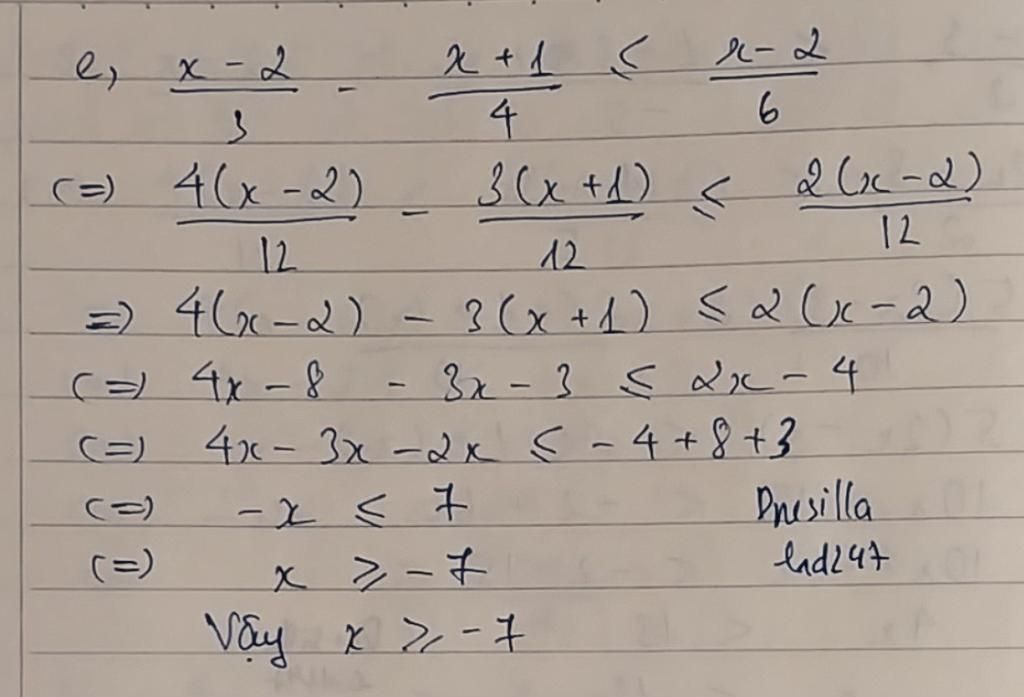 e, x - 2 / 3 - x + 1 / 4 ≤ x - 2 / 6
(=) 4(x - 2) / 12 - 3(x + 1) / 12 ≤ 2(x - 2) / 12
=) 4(x - 2) - 3(x + 1) ≤ 2(x - 2)
(=) 4x - 8 - 3x - 3 ≤ 2x - 4
(=) 4x - 3x - 2x ≤ - 4 + 8 + 3
(=) - x ≤ 7
(=) x ≥ - 7
Vậy x ≥ - 7